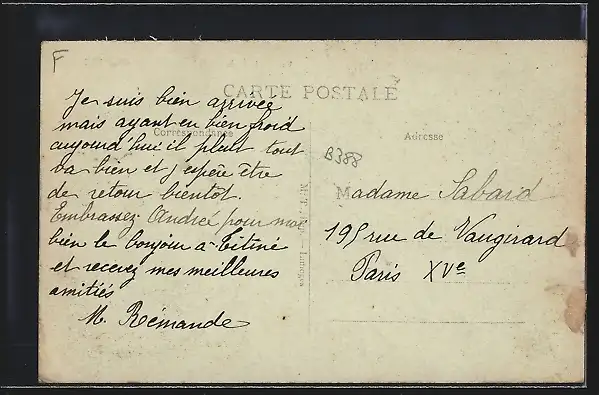 F
CARTE POSTALE
Correspondance
Adresse
Je suis bien arrivée
mais ayant eu bien froid
aujourd'hui il pleut tout
va bien et j'espère être
de retour bientôt.
Embrassez André pour moi
bien le bonjour a Titine
et recevez mes meilleures
amitiés
M. Rémande
B388
Madame Sabard
195 rue de Vaugirard
Paris XVe